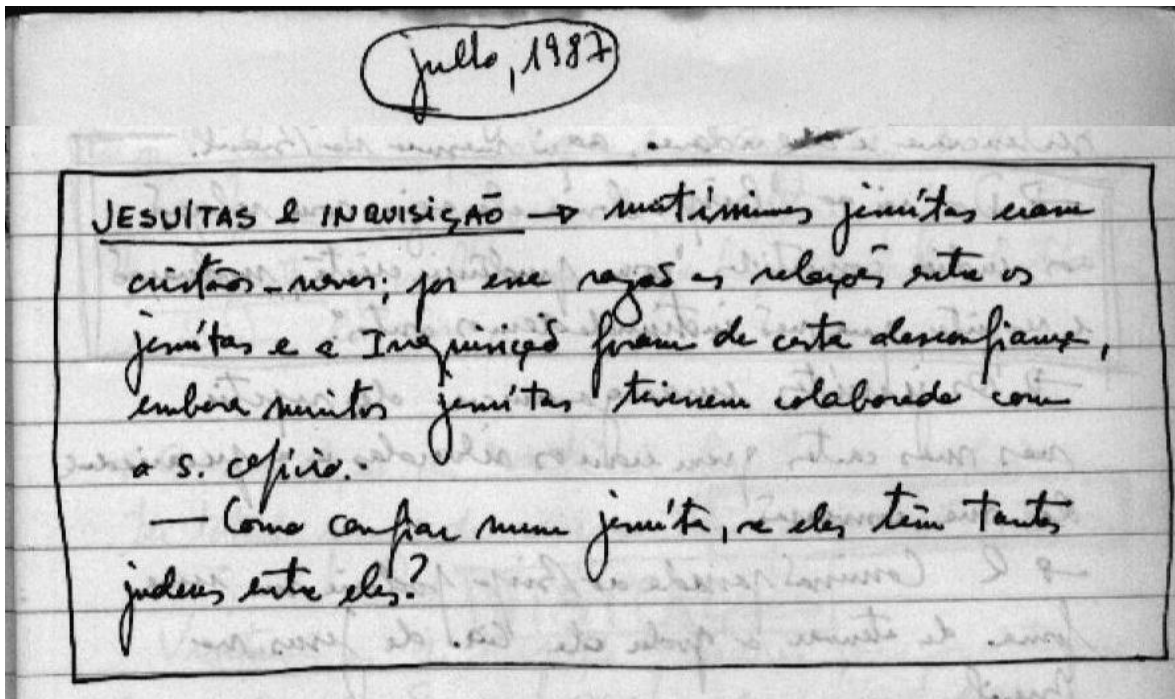 julho, 1987
JESUÍTAS e INQUISIÇÃO → muitíssimos jesuítas eram
cristãos-novos; por essa razão as relações entre os
jesuítas e a Inquisição foram de certa desconfiança,
embora muitos jesuítas tivessem colaborado com
o S. Ofício.
— Como confiar num jesuíta, se eles têm tantos
judeus entre eles?